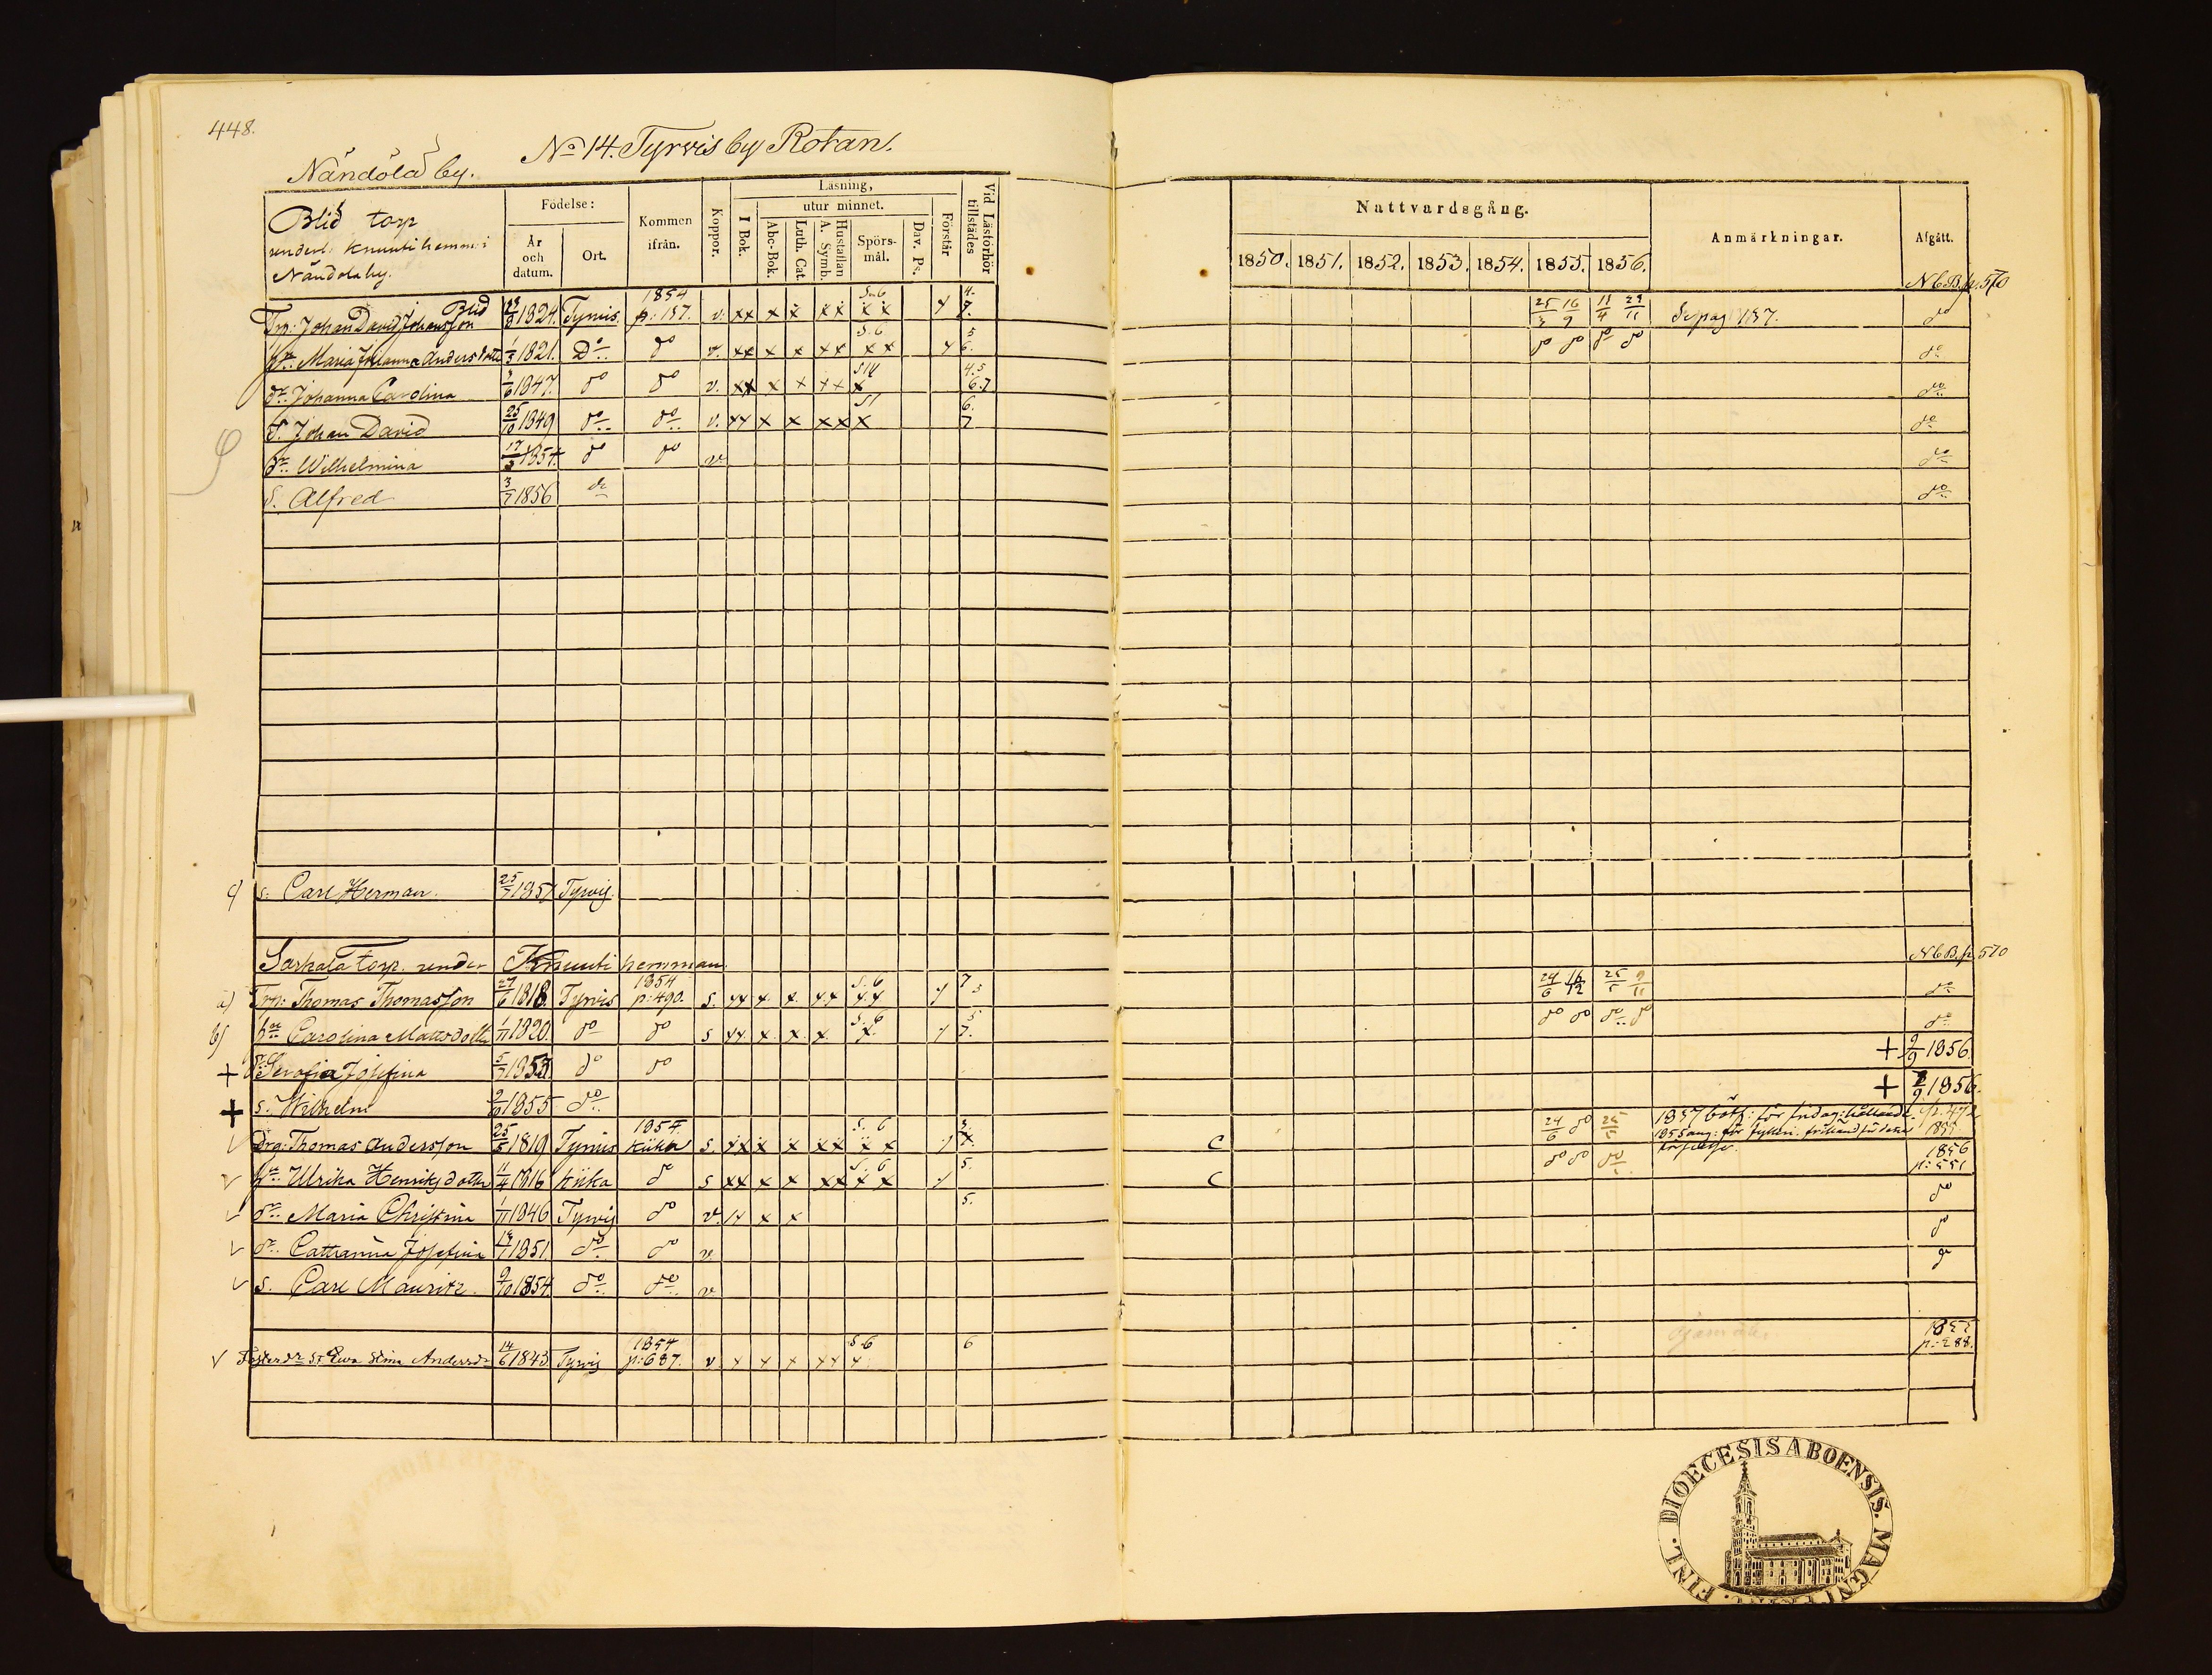 448.
No 14. Tyrvis by Rotan.
Nändölä by.
Blid torp
underl. Knuuti hemm: i
Nändölä by.
Födelse:
År och datum.
Ort.
Kommen ifrån.
Koppor.
Läsning,
I Bok.
utur minnet.
Abc-Bok.
Luth. Cat.
Hustaflan A. Symb.
Spörsmål.
Dav. Ps.
Förstår
Vid Läsförhör tillstädes
Nattvardsgång.
1850. 1851. 1852. 1853. 1854. 1855. 1856.
Anmärkningar.
Afgått.
N.C.B. p. 570
Trp: Johan David Johansson Blid 1824. Tyrvis. 1854 p: 187. v. xx x x xx S. 6 xx 4. 7. 25/3 16/9 11/4 29/11 Se pag 187. do
hu: Maria Johanna Andersdotter 1/3 1821. Do do v. xx x x xx S. 6 xx 5 6. do do do do do
dr. Johanna Carolina 1847. do do v. xx x x xx x 4.5 6.7 do
S. Johan David 25/10 1849 do do v. xx x x xx x 6. 7 do
dr. Wilhelmina 1854. do do v do
S. Alfred 3/7 1856 do do
c) s. Carl Herman. 25/7 1857 Tyrvis
Sarkala Torp. under Knuuti hemman. N.C.B. p. 570
a) Trp: Thomas Thomasson 27/6 1818 Tyrvis 1854 p: 490. S. xx x x xx S. 6 xx 7 5 24/6 16/12 do
b) hu Carolina Mattsdotter 1/11 1820. do do S xx x x x S. 6 x 5 7. do do do do do
+ d: Serafia Josefina 5/7 1853. do do + 9/9 1856.
+ s. Wilhelm 1855 do + 1856.
Drg: Thomas Andersson 25/5 1819 Tyrvis 1854. Kiika S. xx x x xx S. 6 xx C 24/6 do 1857 1855
hu Ulrika Henriksdotter 11/4 1816 Kiika do S xx x x xx S. 6 xx 5. C do do do 1856 p: 551
dr. Maria Christina 1/11 1846 Tyrvis do v. x x 5. do
dr. Catharina Josefina 1851. do do v do
s. Carl Mauritz. 9/10 1854. do do v
Fosterdr Eva Stina Andersdr 14/6 1843 Tyrvis 1854 p: 687. v x x x xx S. 6 x 6 p: 288.
DIOECESIS ABOENSIS. MAGNI
FINL.